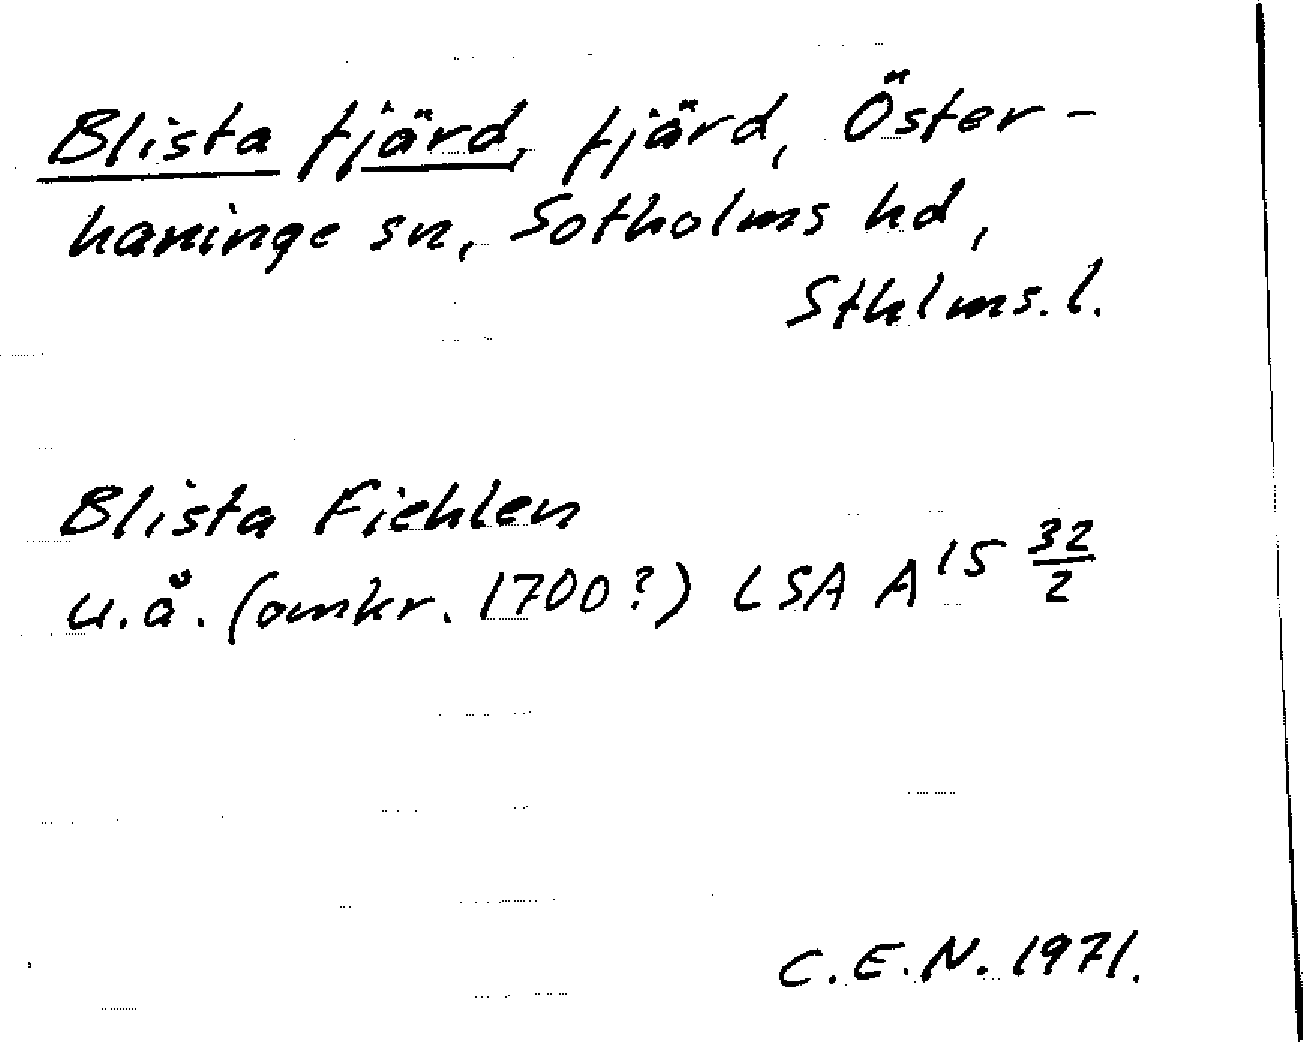 Blista fjärd, fjärd, Öster-
haninge sn, Sotholms hd,
Sthlms. l.
Blista Fiehlen
u.å. (omkr. 1700?) LSA A 15 32/2
C.E.N. 1971.